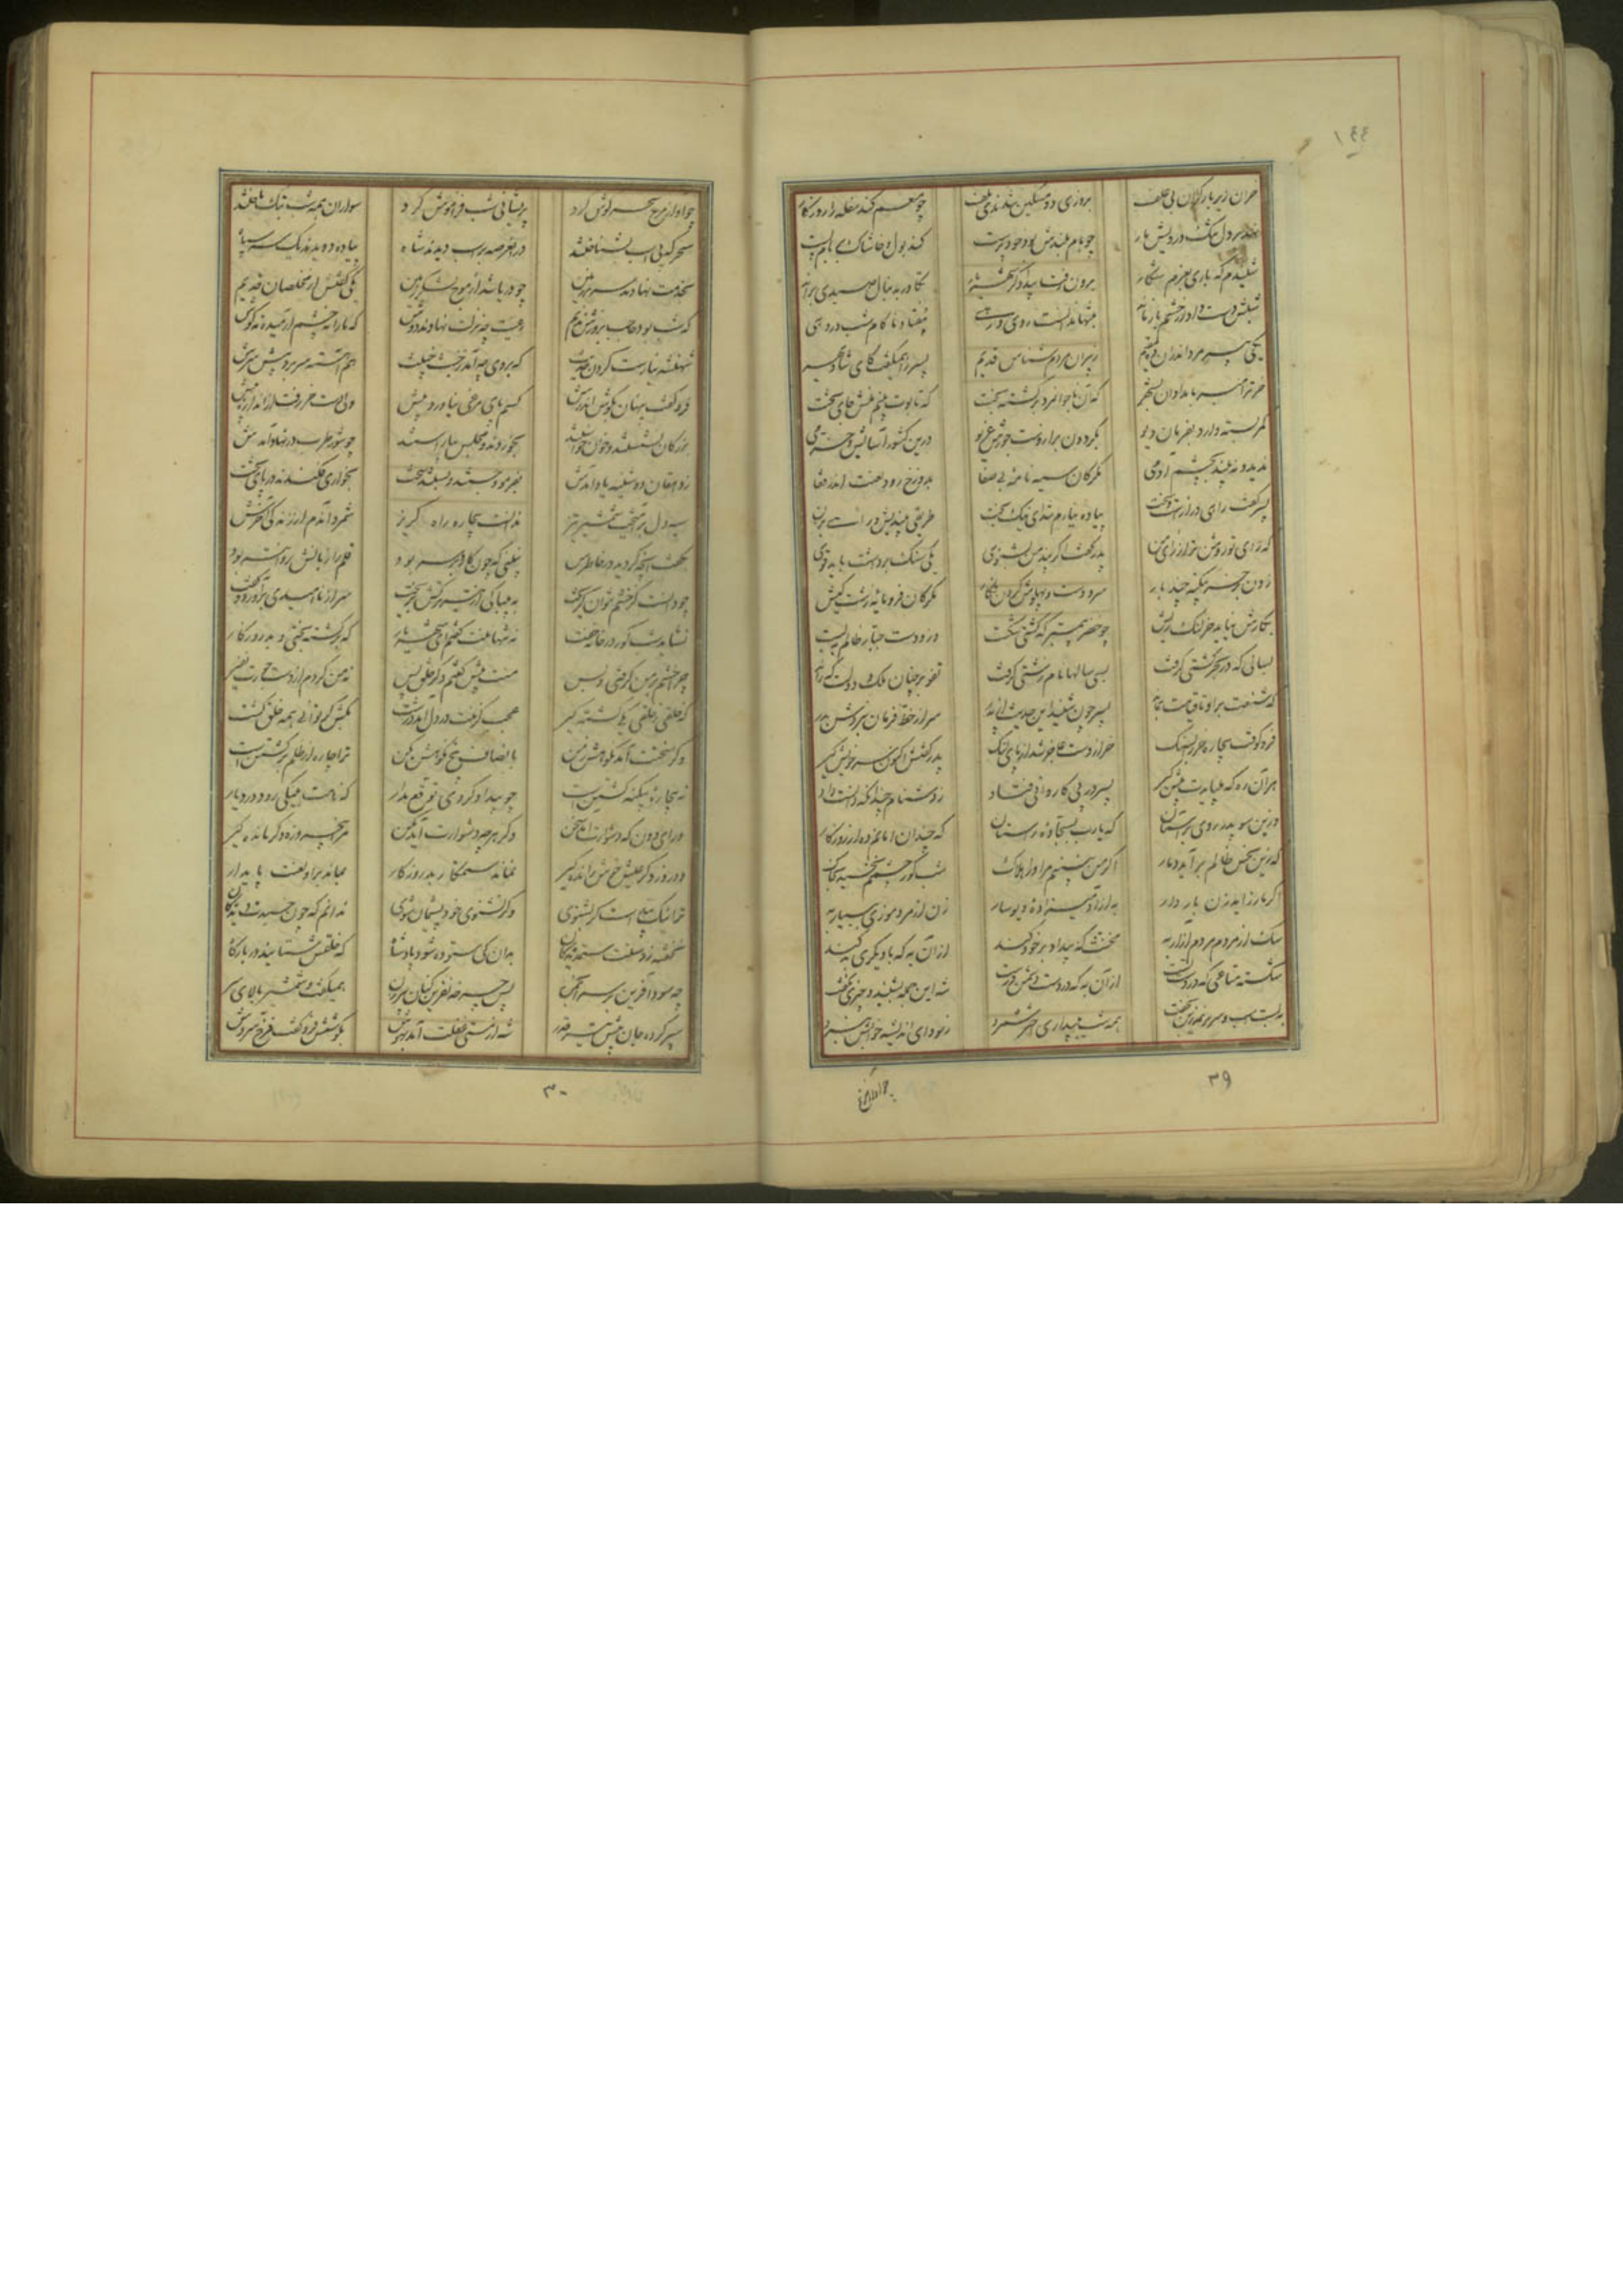 ۱۴۴
خران زیر بار گران بی علف
بروزی دو مسکین شدندی تلف
چو منعم کند سفله را روزگار
نهد بر دل تنگ درویش بار
چو بام بلندش بود خودپرست
کند بول و خاشاک بر بام پست
شنیدم که باری بعزم شکار
برون رفت بیدادگر شهریار
تکاور بدنبال صیدی براند
شبش در از حشم باز ماند
بتنها ندانست روی و رهی
بیفتاد ناکام شب در دهی
یکی پیرمرد اندران ده مقیم
ز پیران مردم شناس قدیم
پسر را همیگفت کای شادبهر
خرت را مبر بامدادان بشهر
که آن ناجوانمرد برگشته بخت
که تابوت بینمش جای تخت
کمر بسته دارد بفرمان دیو
بگردون بر از دست جورش غریو
درین کشور آسایش و خرمی
ندید و نبیند بچشم آدمی
مگر کان سیه نامه بی صفا
بدوزخ رود لعنت اندر قفا
پسر گفت راه دراز است و سخت
پیاده نیارم شد ای نیکبخت
طریقی بیندیش و رائی بزن
که رای تو روشن تر از رای من
پدر گفت اگر پند من بشنوی
یکی سنگ برداشت باید قوی
زدن بر خر بیگنه چند بار
سر و دست و پهلوش کردن فگار
مگر کان فرومایه زشت کیش
بکارش نیاید خر لنگ ریش
چو خضر پیمبر که کشتی شکست
وزو دست جبار ظالم ببست
بسالی که در بحر کشتی گرفت
بسی سالها نام زشتی گرفت
تفو بر چنان ملک و دولت که راند
که شنعت برو تا قیامت بماند
پسر چون شنید این حدیث از پدر
سر از خط فرمان نبردش بدر
فرو کوفت بیچاره خر را بسنگ
خر از دست عاجز شد از پای لنگ
پدر گفتش اکنون سر خویش گیر
هر آن ره که میبایدت پیش گیر
پسر در پی کاروان فتاد
ز دشنام چندانکه دانست داد
وزین سو پدر روی بر آستان
که یارب بسجاده راستان
که چندان امانم ده از روزگار
کزین نحس ظالم برآید دمار
اگر من نبینم مر او را هلاک
شب گور چشمم نخسبد بخاک
اگر مار زاید زن باردار
به از آدمی زاده دیوسار
زن از مرد موذی بسیار به
سگ از مردم مردم آزار به
مخنث که بیداد بر خود کند
از آن به که با دیگری بد کند
شکسته متاعی که در دست
از آن به که در دست دشمن درست
شه این جمله بشنید و چیزی نگفت
ببست اسب و سر بر نمدزین بخفت
همه شب ببیداری اختر شمرد
ز سودای اندیشه خوابش نبرد
چو آواز مرغ
۳۹
چو آواز مرغ سحر گوش کرد
پریشانی شب فراموش کرد
سواران همه شب همی تاختند
سحرگه پی اسب بشناختند
در آن عرصه بر اسب دیدند شاه
پیاده دویدند یک سر سپاه
بخدمت نهادند سر بر زمین
چو دریا شد از موج لشکر زمین
یکی گفتش از مخلصان قدیم
که شب بود حاجب بروزش ندیم
رعیت چه نزلت نهادند دوش
که ما را نه چشم آرمید و نه گوش
شهنشه نیارست کردن حدیث
که بر وی چه آمد ز خبث خبیث
هم آهسته سر برد پیش سرش
فرو گفت پنهان بگوش اندرش
کسم پای مرغی نیاورد پیش
ولی دست خر رفت از اندازه بیش
بزرگان نشستند و خوان خواستند
بخوردند و مجلس بیاراستند
چو شور طرب در نهاد آمدش
ز دهقان دوشینه یاد آمدش
بفرمود جستند و بستند سخت
بخواری فکندند در پای تخت
سیه دل برآهیخت شمشیر تیز
ندانست بیچاره راه گریز
شمرد آندم از زندگی آخرش
بگفت آنچه گردید در خاطرش
نبینی که چون کارد بر سر بود
قلم را زبانش روانتر بود
چو دانست کز خصم نتوان گریخت
به بیباکی از تیر ترکش بریخت
سر از ناامیدی برآورد و گفت
نشاید شب گور در خانه خفت
نه تنها منت گفتم ای شهریار
که برگشته بختی و بد روزگار
چرا خشم بر من گرفتی و بس
منت پیش گفتم دگر خلق پس
نه من کردم از دست جورت نفیر
که خلقی ز خلقی یکی کشته گیر
عجب کزمنت در دل آمد درشت
بکش گر توانی همه خلق کشت
وگر سخت آمد نکوهش ز من
بانصاف بیخ نکوهش بکن
ترا چاره از ظلم برگشتن است
نه بیچاره بیگنه کشتن است
چو بیداد کردی توقع مدار
که نامت بنیکی رود در دیار
ورای دون که دشوارت آمد سخن
دگر هرچه دشوارت آید مکن
دو روز دگر عیش خوش رانده گیر
نماند ستمکار بد روزگار
بماند برو لعنت پایدار
ترا نیک پند است گر بشنوی
وگر نشنوی خود پشیمان شوی
ندانم که چون خسبدت دیدگان
نخفته ز دستت ستمدیدگان
بدان کی ستوده شود پادشاه
که خلقش ستایند در بارگاه
چه سود آفرین بر سر انجمن
پس چرخه نفرین کنان پیرزن
همیگفت و شمشیر بالای سر
سپر کرده جان پیش تیر قدر
شه از مستی غفلت آمد بهوش
بگوشش فرو گفت فرخ سروش
۳۰